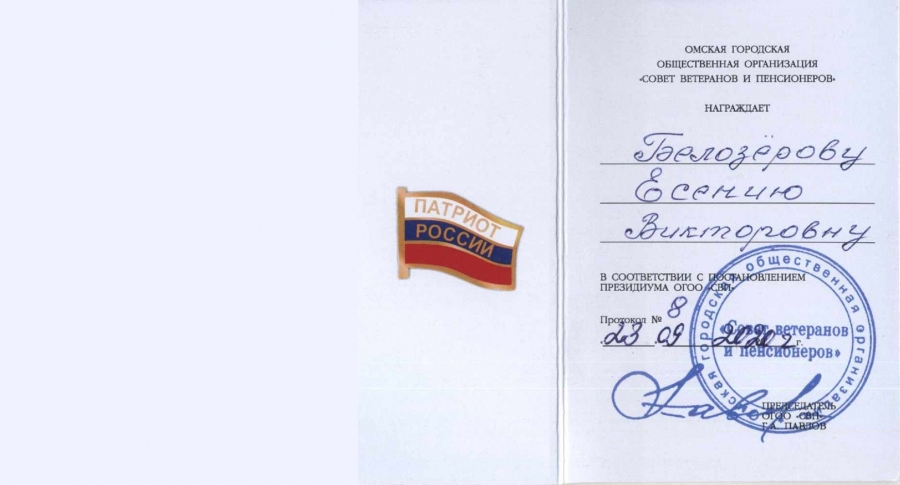 ПАТРИОТ
РОССИИ
ОМСКАЯ ГОРОДСКАЯ
ОБЩЕСТВЕННАЯ ОРГАНИЗАЦИЯ
«СОВЕТ ВЕТЕРАНОВ И ПЕНСИОНЕРОВ»
НАГРАЖДАЕТ
Белозёрову
Есению
Викторовну
В СООТВЕТСТВИИ С ПОСТАНОВЛЕНИЕМ
ПРЕЗИДИУМА ОГОО «СВП»
Протокол № 8
23 09 2020 г.
городская общественная
«Совет ветеранов
и пенсионеров»
ПРЕДСЕДАТЕЛЬ
ОГОО «СВП»
Г.А. ПАВЛОВ